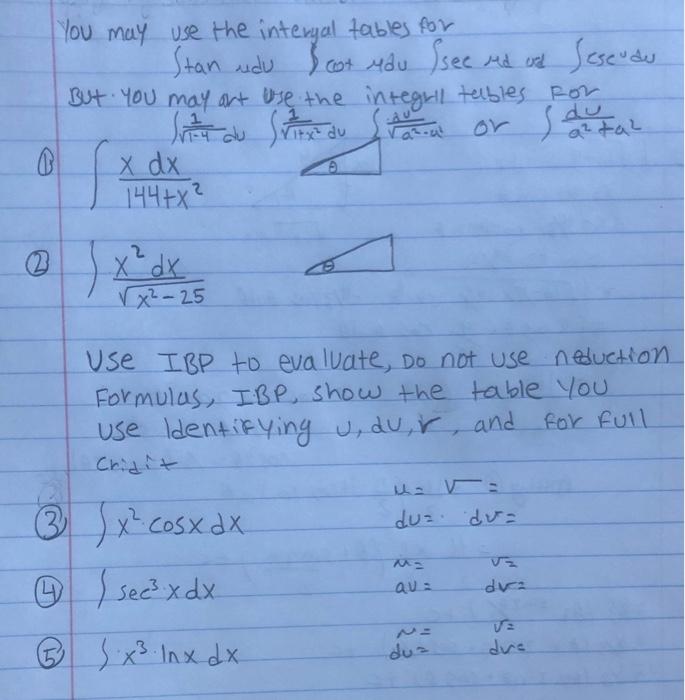 You may use the intergal tables for
∫tan udu ∫cot udu ∫sec ud ∫cscudu
But you may art use the integrll tables For
∫ du ∫ 1/√1+x² du ∫ or ∫ du/a²+a²
① ∫ x dx/144+x² θ
② ∫ x² dx/√x²-25 θ
Use IBP to evaluate, Do not use neduction
Formulas, IBP, show the table You
use Identifying u, du, v, and for full
cridit
u= v=
③ ∫ x² cosx dx du= dv=
u= v=
④ ∫ sec³ x dx du= dv=
u= v=
⑤ ∫ x³ · lnx dx du= dv=